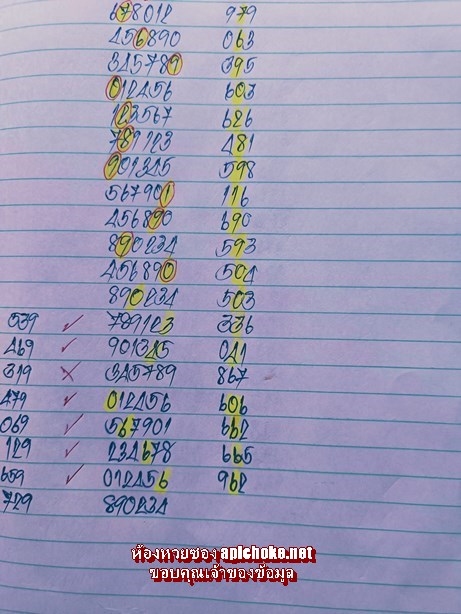 678012 979
456890 063
345789 395
012456 603
123567 626
789123 481
901345 598
567901 116
456890 690
890234 593
456890 504
890234 503
539 ✓ 789123 336
469 ✓ 901345 041
319 ✗ 345789 867
479 ✓ 012456 606
069 ✓ 567901 662
129 ✓ 234678 665
659 ✓ 012456 962
729 890234
ห้องหวยซอง apichoke.net
ขอบคุณเจ้าของข้อมูล